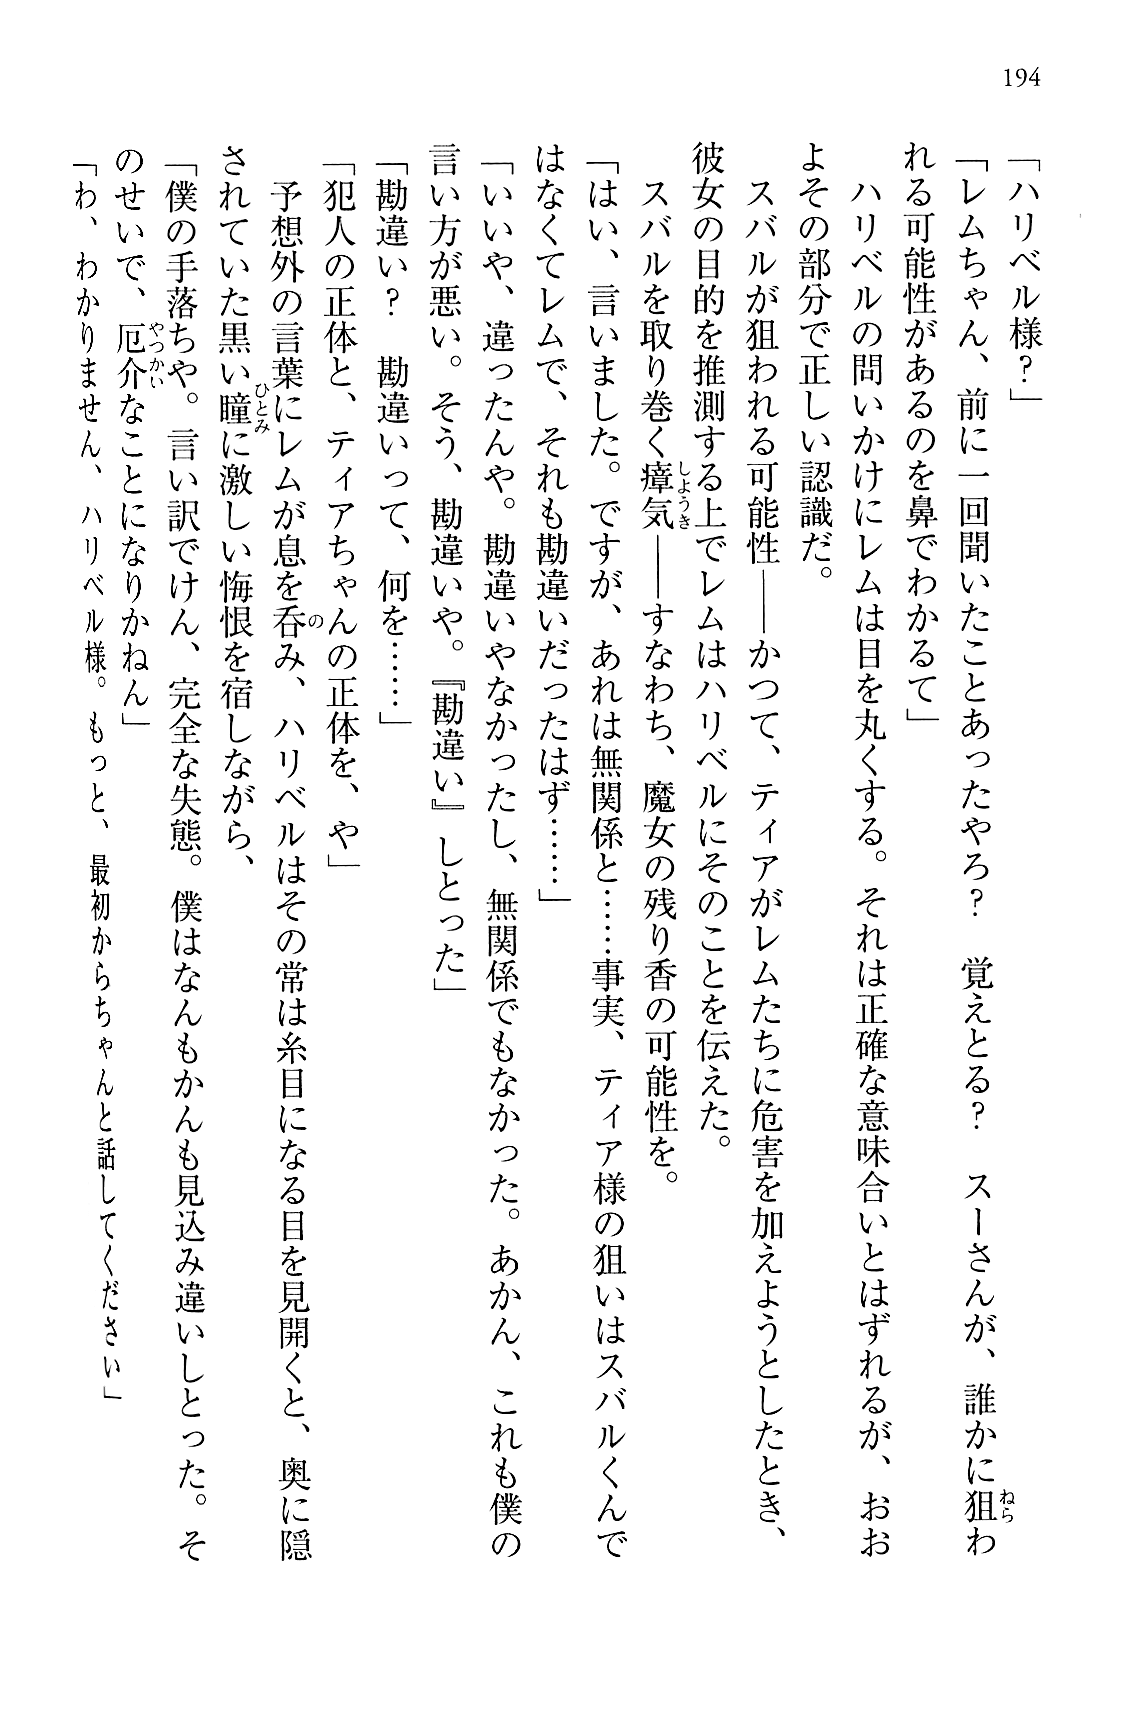 194
「ハリベル様?」
「レムちゃん、前に一回聞いたことあったやろ? 覚えとる? スーさんが、誰かに狙わ
れる可能性があるのを鼻でわかるて」
　ハリベルの問いかけにレムは目を丸くする。それは正確な意味合いとはずれるが、おお
よその部分で正しい認識だ。
　スバルが狙われる可能性――かつて、ティアがレムたちに危害を加えようとしたとき、
彼女の目的を推測する上でレムはハリベルにそのことを伝えた。
　スバルを取り巻く瘴気――すなわち、魔女の残り香の可能性を。
「はい、言いました。ですが、あれは無関係と……事実、ティア様の狙いはスバルくんで
はなくてレムで、それも勘違いだったはず……」
「いいや、違ったんや。勘違いやなかったし、無関係でもなかった。あかん、これも僕の
言い方が悪い。そう、勘違いや。『勘違い』しとった」
「勘違い? 勘違いって、何を……」
「犯人の正体と、ティアちゃんの正体を、や」
　予想外の言葉にレムが息を呑み、ハリベルはその常は糸目になる目を見開くと、奥に隠
されていた黒い瞳に激しい悔恨を宿しながら、
「僕の手落ちや。言い訳でけん、完全な失態。僕はなんもかんも見込み違いしとった。そ
のせいで、厄介なことになりかねん」
「わ、わかりません、ハリベル様。もっと、最初からちゃんと話してください」